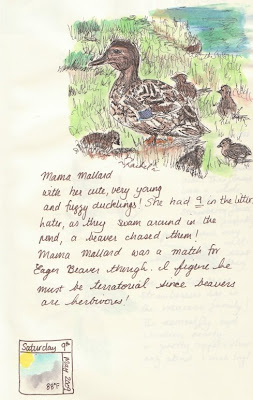 Mama Mallard
with her cute, very young
and fuzzy ducklings! She had 9 in the litter.
Later, as they swam around in the
pond, a beaver chased them!
Mama Mallard was a match for
Eager Beaver though. I figure he
must be terratorial since beavers
are herbivous!
Saturday 9th
May 2009
88°F